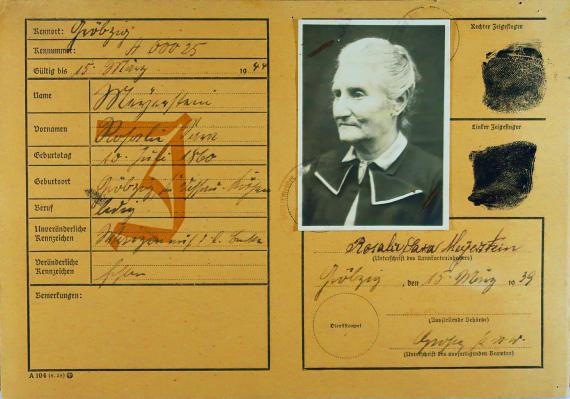 Kennort: Gröbzig
Kennummer: A 00025
Gültig bis 15. März 1944
Name Meyerstein
Vornamen Rosalie Sara
Geburtstag 10. Juli 1860
Geburtsort Gröbzig
Beruf ledig
Unveränderliche Kennzeichen
Veränderliche Kennzeichen
Bemerkungen:
J
A 104
Rechter Zeigefinger
Linker Zeigefinger
Rosalie Sara Meyerstein
(Unterschrift des Kennkarteninhabers)
Gröbzig, den 15. März 1939
Dienststempel
(Ausstellende Behörde)
(Unterschrift des ausfertigenden Beamten)